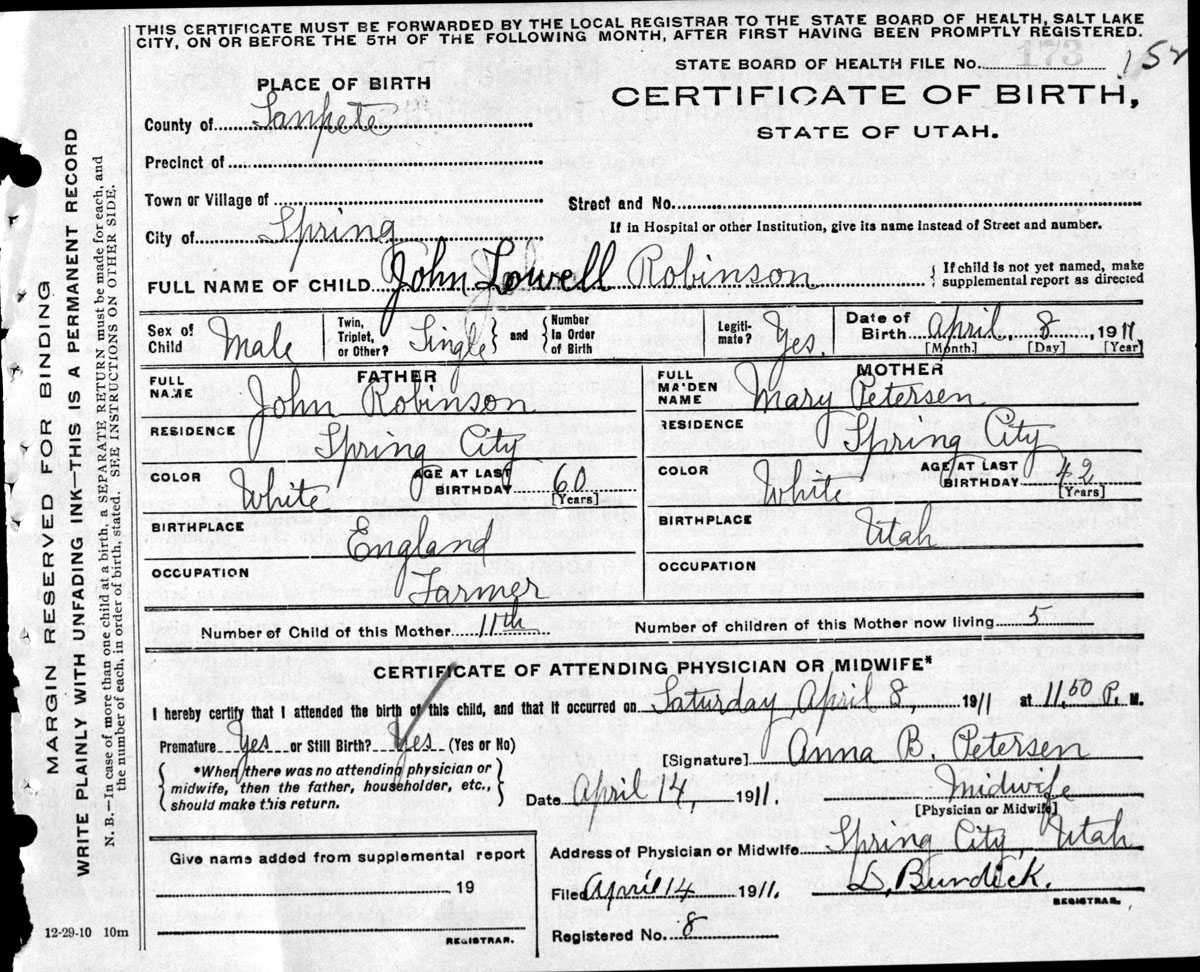 THIS CERTIFICATE MUST BE FORWARDED BY THE LOCAL REGISTRAR TO THE STATE BOARD OF HEALTH, SALT LAKE
CITY, ON OR BEFORE THE 5TH OF THE FOLLOWING MONTH, AFTER FIRST HAVING BEEN PROMPTLY REGISTERED.
STATE BOARD OF HEALTH FILE No. 173 152
PLACE OF BIRTH
CERTIFICATE OF BIRTH,
STATE OF UTAH.
County of Sanpete
Precinct of
Town or Village of
Street and No.
City of Spring
If in Hospital or other Institution, give its name instead of Street and number.
FULL NAME OF CHILD John Lowell Robinson { If child is not yet named, make supplemental report as directed
Sex of Child Male Twin, Triplet, or Other? Single } and { Number in Order of Birth Legiti-mate? Yes. Date of Birth April 8, 1911
[Month.] [Day] [Year]
FATHER MOTHER
FULL NAME John Robinson FULL MAIDEN NAME Mary Petersen
RESIDENCE Spring City RESIDENCE Spring City
COLOR White AGE AT LAST BIRTHDAY 60 [Years] COLOR White AGE AT LAST BIRTHDAY 42 [Years]
BIRTHPLACE England BIRTHPLACE Utah
OCCUPATION Farmer OCCUPATION
Number of Child of this Mother 11th Number of children of this Mother now living 5
CERTIFICATE OF ATTENDING PHYSICIAN OR MIDWIFE*
I hereby certify that I attended the birth of this child, and that it occurred on Saturday, April 8, 1911 at 11.50 P. M.
Premature Yes or Still Birth? Yes (Yes or No)
[Signature] Anna B. Petersen
{ *When there was no attending physician or
midwife, then the father, householder, etc.,
should make this return. }
Date April 14, 1911. Midwife
[Physician or Midwife]
Give name added from supplemental report
19
REGISTRAR.
Address of Physician or Midwife Spring City, Utah
Filed April 14 1911. D. Burdick.
REGISTRAR.
Registered No. 8
12-29-10 10m
MARGIN RESERVED FOR BINDING
WRITE PLAINLY WITH UNFADING INK—THIS IS A PERMANENT RECORD
N. B.—In case of more than one child at a birth, a SEPARATE RETURN must be made for each, and
the number of each, in order of birth, stated. SEE INSTRUCTIONS ON OTHER SIDE.